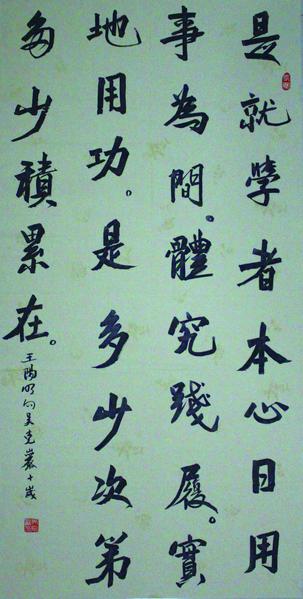 是就學者本心日用
事為間。體究踐履。實
地用功。是多少次第
多少積累在。
王陽明句吳克嚴十歲